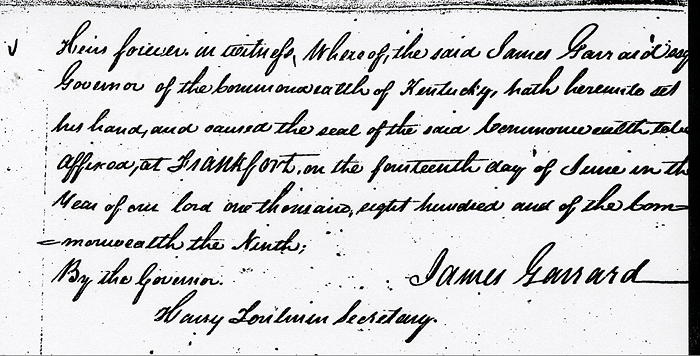 Heirs forever. in witness, Whereof, the said James Garrard esq
Governor of the Commonwealth of Kentucky, hath hereunto set
his hand, and caused the seal of the said Commonwealth to be
affixed, at Frankfort, on the fourteenth day of June in the
Year of our lord one thousand, eight hundred and of the Com=
=monwealth the Ninth;
By the Governor.
James Garrard
Harry Toulmin Secretary.